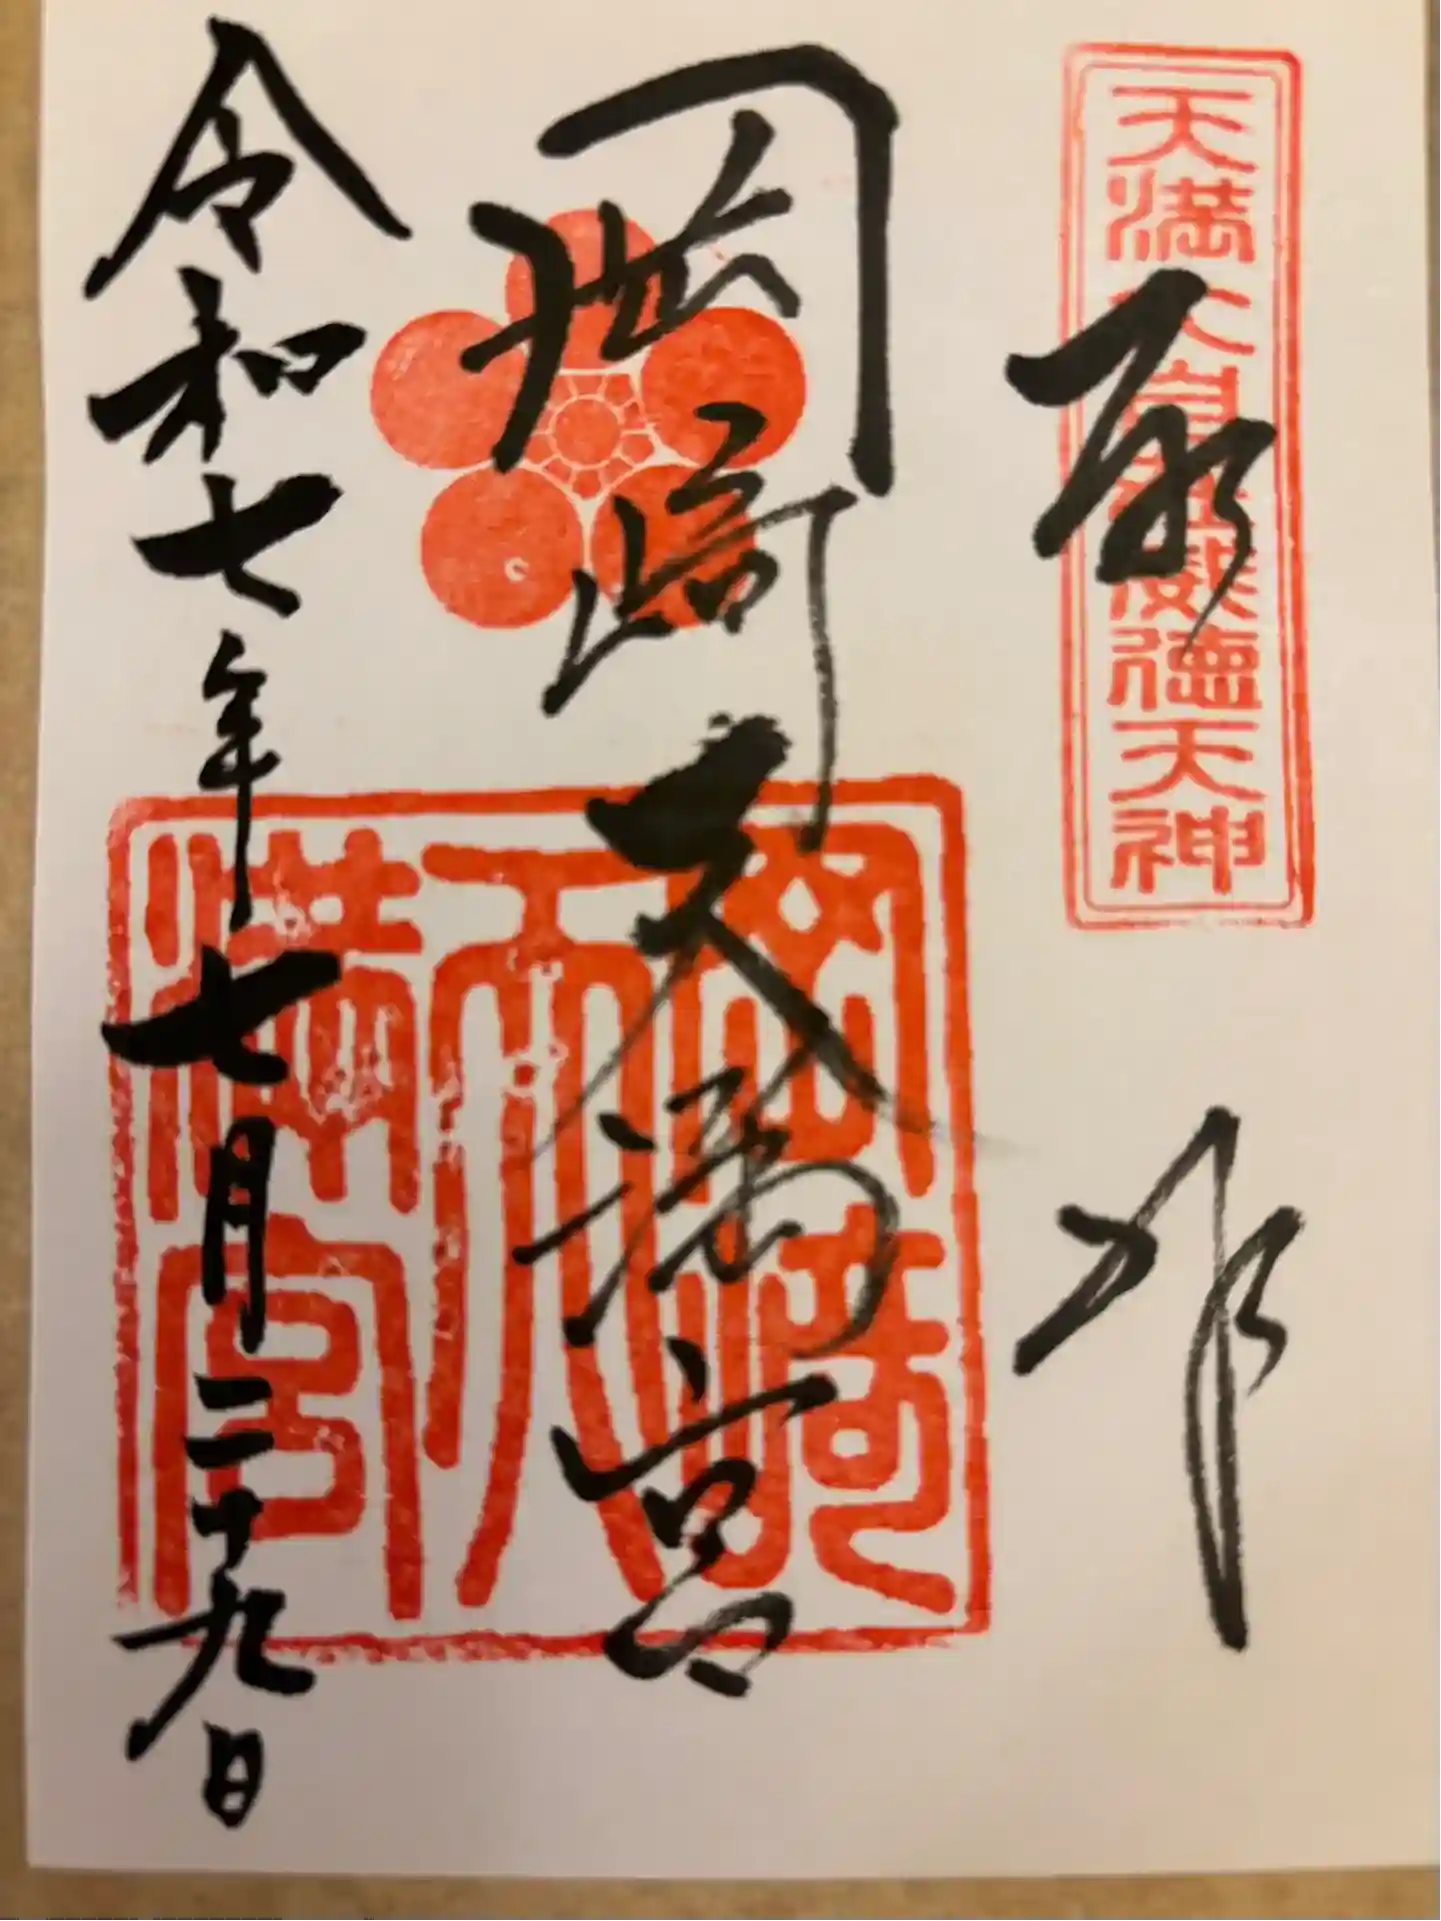 天満大自在威徳天神
奉拝
岡崎天満宮
岡崎天満宮
令和七年七月二十九日